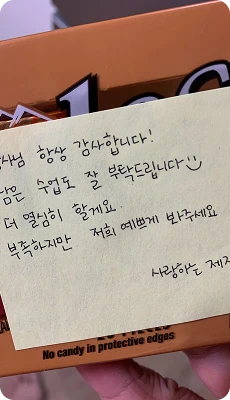 항상 감사합니다!
남은 수업도 잘 부탁드립니다
더 열심히 할게요.
부족하지만 저희 예쁘게 봐주세요
사랑하는 제자
No candy in protective edges